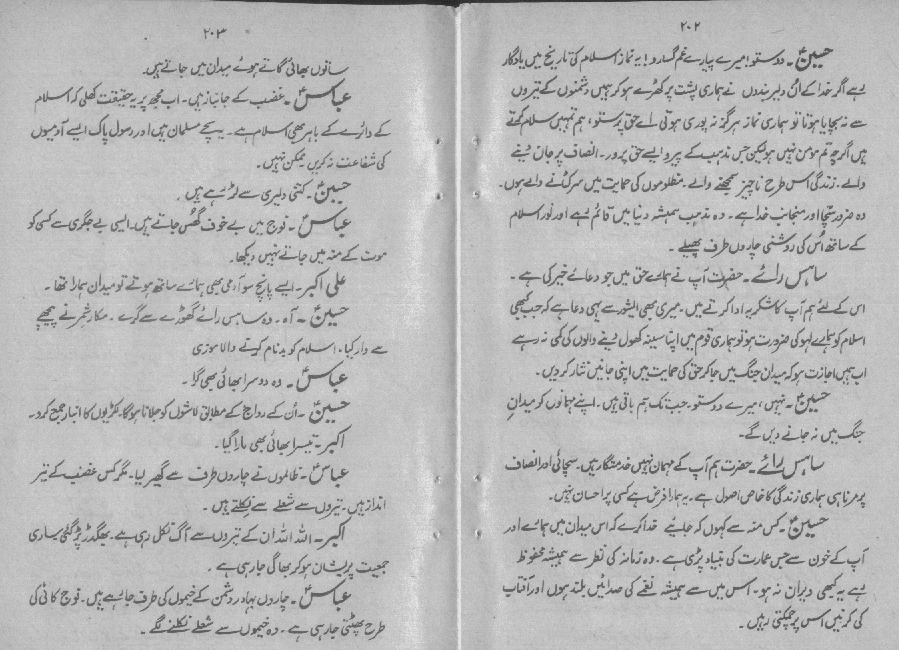 ۲۰۲
حسینؑ۔ دوستو! میرے پیارے غم گسارو! یہ نماز اسلام کی تاریخ میں یادگار
رہے اگر خدا کے اِن دلیر بندوں نے ہماری پشت پر کھڑے ہو کر ہمیں دشمنوں کے تیروں
سے نہ بچایا ہوتا تو ہماری نماز ہرگز نہ پوری ہوتی اے حق پرستو، ہم تمہیں سلام کرتے
ہیں اگرچہ تم مومن نہیں ہو لیکن جس مذہب کے پیرو ایسے حق پرور۔ انصاف پر جان دینے
والے۔ زندگی اس طرح ناچیز سمجھنے والے۔ مظلوموں کی حمایت میں سر کٹانے والے ہوں۔
وہ ضرور سچا اور منجانب خدا ہے۔ وہ مذہب ہمیشہ دنیا میں قائم رہے اور نور اسلام
کے ساتھ اُس کی روشنی چاروں طرف پھیلے۔
ساہس رائے۔ حضرت آپ نے ہمارے حق میں جو دعائے خیر کی ہے۔
اس کے لئے ہم آپ کا شکریہ ادا کرتے ہیں۔ میری بھی ایشور سے یہی دعا ہے کہ جب کبھی
اسلام کو ہمارے لہو کی ضرورت ہو تو ہماری قوم میں اپنا سینہ کھول دینے والوں کی کمی نہ رہے
اب ہمیں اجازت ہو کہ میدان جنگ میں جا کر حق کی حمایت میں اپنی جانیں نثار کر دیں۔
حسینؑ۔ نہیں، میرے دوستو۔ جب تک ہم باقی ہیں۔ اپنے مہمانوں کو میدانِ
جنگ میں نہ جانے دیں گے۔
ساہس رائے۔ حضرت ہم آپ کے مہمان نہیں خدمتگار ہیں۔ سچائی اور انصاف
پر مرنا ہی ہماری زندگی کا خاص اصول ہے۔ یہ ہمارا فرض ہے کسی پر احسان نہیں۔
حسینؑ۔ کس منہ سے کہوں کہ جائیے خدا کرے کہ اس میدان میں ہمارے اور
آپ کے خون سے جس عمارت کی بنیاد پڑی ہے۔ وہ زمانہ کی نظر سے ہمیشہ محفوظ
رہے یہ کبھی ویران نہ ہو۔ اس میں سے ہمیشہ نغمے کی صدائیں بلند ہوں اور آفتاب
کی کرنیں اس پر چمکتی رہیں۔
۲۰۳
ساتوں بھائی گاتے ہوئے میدان میں جاتے ہیں۔
عباسؑ۔ غضب کے جانباز ہیں۔ اب مجھ پر یہ حقیقت کھلی کہ اسلام
کے دائرے کے باہر بھی اسلام ہے۔ یہ سچے مسلمان ہیں اور رسول پاک ایسے آدمیوں
کی شفاعت نہ کریں ممکن نہیں۔
حسینؑ۔ کتنی دلیری سے لڑ رہے ہیں۔
عباسؑ۔ فوج میں بے خوف گھس جاتے ہیں۔ ایسی بے جگری سے کسی کو
موت کے منہ میں جاتے نہیں دیکھا۔
علی اکبر۔ ایسے پانچ سو آدمی بھی ہمارے ساتھ ہوتے تو میدان ہمارا تھا۔
حسینؑ۔ آہ۔ وہ ساہس رائے گھوڑے سے گرے۔ مکار شمر نے پیچھے
سے وار کیا۔ اسلام کو بدنام کرنے والا موزی
عباسؑ۔ وہ دوسرا بھائی بھی گرا۔
حسینؑ۔ اُن کے رواج کے مطابق لاشوں کو جلانا ہوگا۔ لکڑیوں کا انبار جمع کردو۔
اکبر۔ تیسرا بھائی بھی مارا گیا۔
عباسؑ۔ ظالموں نے چاروں طرف سے گھیر لیا۔ مگر کس غضب کے تیر
انداز ہیں۔ تیروں سے شعلے سے نکلتے ہیں۔
اکبر۔ اللہ اللہ ان کے تیروں سے آگ نکل رہی ہے۔ بھگدڑ پڑ گئی ساری
جمعیت پریشان ہو کر بھاگی جا رہی ہے۔
عباسؑ۔ چاروں بہادر دشمن کے خیموں کی طرف جا رہے ہیں۔ فوج کائی کی
طرح پھٹتی جا رہی ہے۔ وہ خیموں سے شعلے نکلنے لگے۔